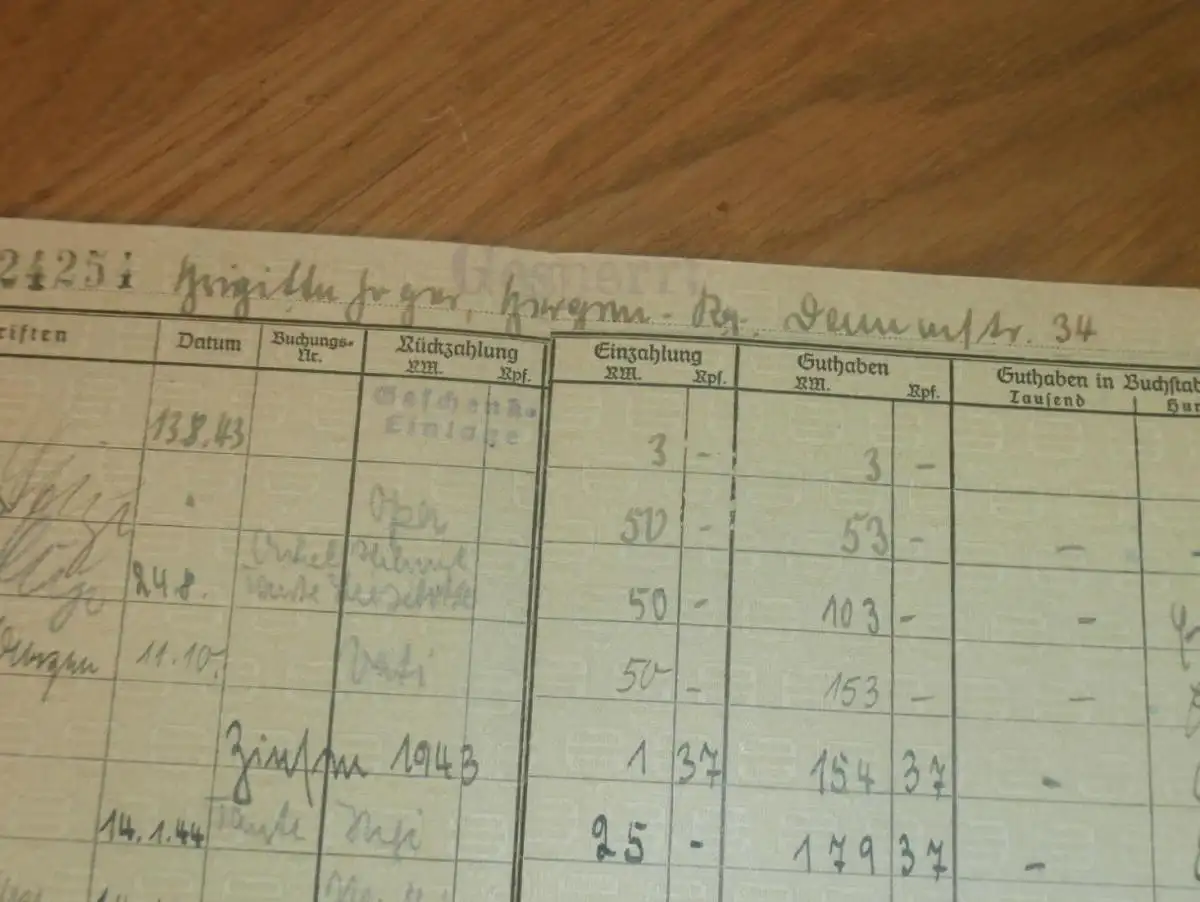 24254 Brigitte Jeger, Bergen - Rg. Dammstr. 34
Gesperrt
riften Datum Buchungs- Nr. Rückzahlung RM. Rpf. Einzahlung RM. Rpf. Guthaben RM. Rpf. Guthaben in Buchstab Tausend Hun
13.8.43 Geschenk- Einlage 3 - 3 -
Opa 50 - 53 - -
Onkel Helmut
24.8. Tante Lieselotte 50 - 103 - -
Bergen 11.10. Vati 50 - 153 - -
Zinsen 1943 1 37 154 37 -
14.1.44 Tante 25 - 179 37 -